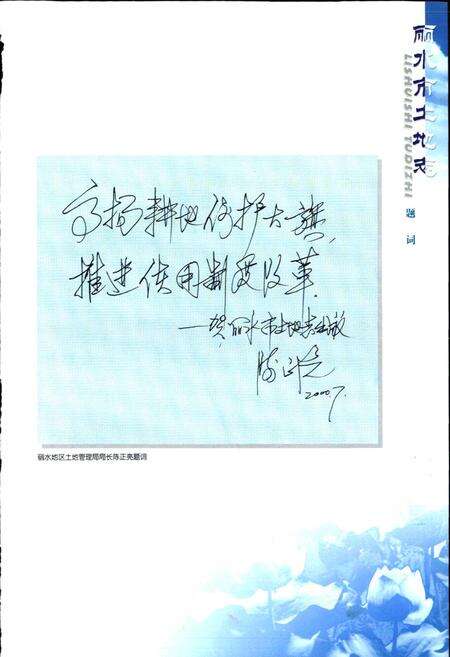 丽水市土地志
LISHUISHI TUDIZHI
题词
高扬耕地保护大旗,
推进使用制度改革.
——贺丽水市土地志出版
陈正亮
2000.7.
丽水地区土地管理局局长陈正亮题词